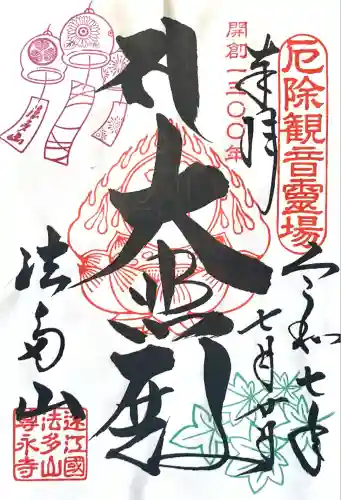 厄除観音靈場
奉拝
開創一三〇〇年
大悲殿
令和七年
七月廿日
法多山
遠江國
法多山
尊永寺